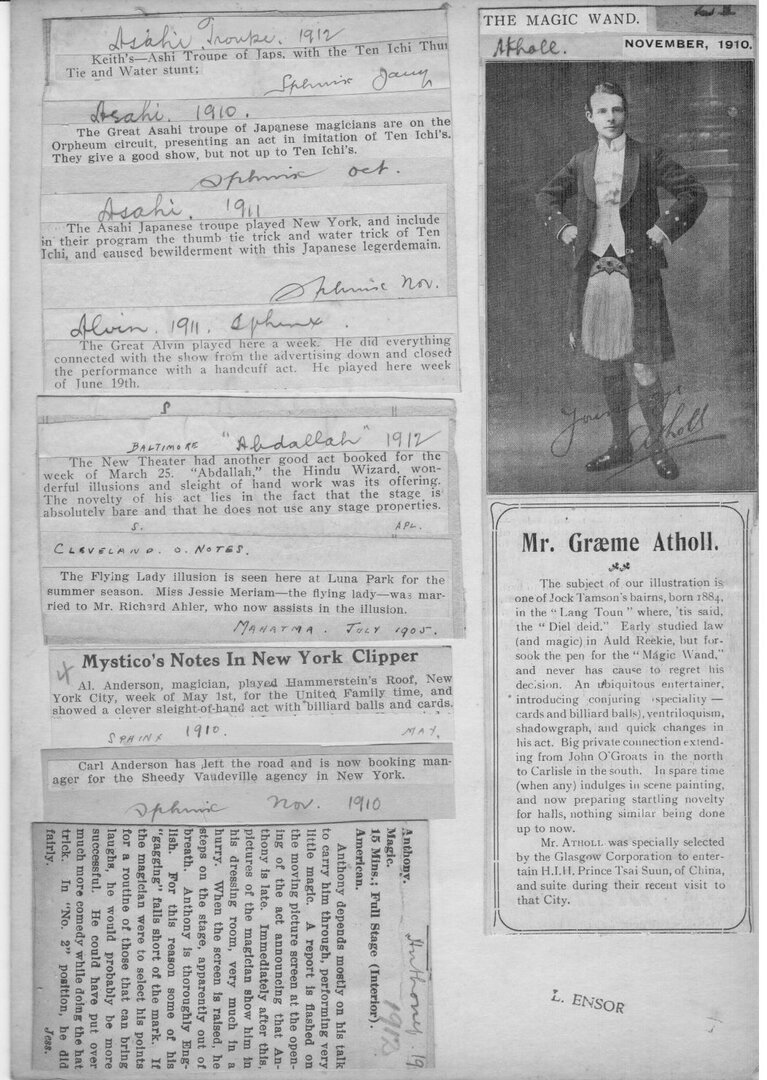 Asahi Troupe. 1912
Keith's—Ashi Troupe of Japs, with the Ten Ichi Thum
Tie and Water stunt;
Sphinx Jany
Asahi. 1910.
The Great Asahi troupe of Japanese magicians are on the
Orpheum circuit, presenting an act in imitation of Ten Ichi's.
They give a good show, but not up to Ten Ichi's.
Sphinx Oct.
Asahi. 1911
The Asahi Japanese troupe played New York, and include
in their program the thumb tie trick and water trick of Ten
Ichi, and caused bewilderment with this Japanese legerdemain.
Sphinx Nov.
Alvin. 1911. Sphinx.
The Great Alvin played here a week. He did everything
connected with the show from the advertising down and closed
the performance with a handcuff act. He played here week
of June 19th.
S
BALTIMORE "Abdallah" 1912
The New Theater had another good act booked for the
week of March 25. "Abdallah," the Hindu Wizard, won-
derful illusions and sleight of hand work was its offering.
The novelty of his act lies in the fact that the stage is
absolutely bare and that he does not use any stage properties.
S. APL.
CLEVELAND. O. NOTES.
The Flying Lady illusion is seen here at Luna Park for the
summer season. Miss Jessie Meriam—the flying lady—was mar-
ried to Mr. Richard Ahler, who now assists in the illusion.
MAHATMA. JULY 1905.
Mystico's Notes In New York Clipper
Al. Anderson, magician, played Hammerstein's Roof, New
York City, week of May 1st, for the United Family time, and
showed a clever sleight-of-hand act with billiard balls and cards.
SPHINX 1910. MAY.
Carl Anderson has left the road and is now booking man-
ager for the Sheedy Vaudeville agency in New York.
Sphinx Nov. 1910
Anthony 19
1912
Anthony.
Magic.
15 Mins.; Full Stage (Interior).
American.
Anthony depends mostly on his talk
to carry him through, performing very
little magic. A report is flashed on
the moving picture screen at the open-
ing of the act announcing that An-
thony is late. Immediately after this,
pictures of the magician show him in
his dressing room, very much in a
hurry. When the screen is raised, he
steps on the stage, apparently out of
breath. Anthony is thoroughly Eng-
lish. For this reason some of his
"gagging" falls short of the mark. If
the magician were to select his points
for a routine of those that can bring
laughs, he would probably be more
successful. He could have put over
much more comedy while doing the hat
trick. In "No. 2" position, he did
fairly. Jess.
THE MAGIC WAND.
Atholl.
NOVEMBER, 1910.
Atholl
Mr. Græme Atholl.
The subject of our illustration is
one of Jock Tamson's bairns, born 1884,
in the "Lang Toun" where, 'tis said,
the "Diel deid." Early studied law
(and magic) in Auld Reekie, but for-
sook the pen for the "Magic Wand,"
and never has cause to regret his
decision. An ubiquitous entertainer,
introducing conjuring (speciality—
cards and billiard balls), ventriloquism,
shadowgraph, and quick changes in
his act. Big private connection extend-
ing from John O'Groats in the north
to Carlisle in the south. In spare time
(when any) indulges in scene painting,
and now preparing startling novelty
for halls, nothing similar being done
up to now.
Mr. ATHOLL was specially selected
by the Glasgow Corporation to enter-
tain H.I.H. Prince Tsai Suun, of China,
and suite during their recent visit to
that City.
L. ENSOR